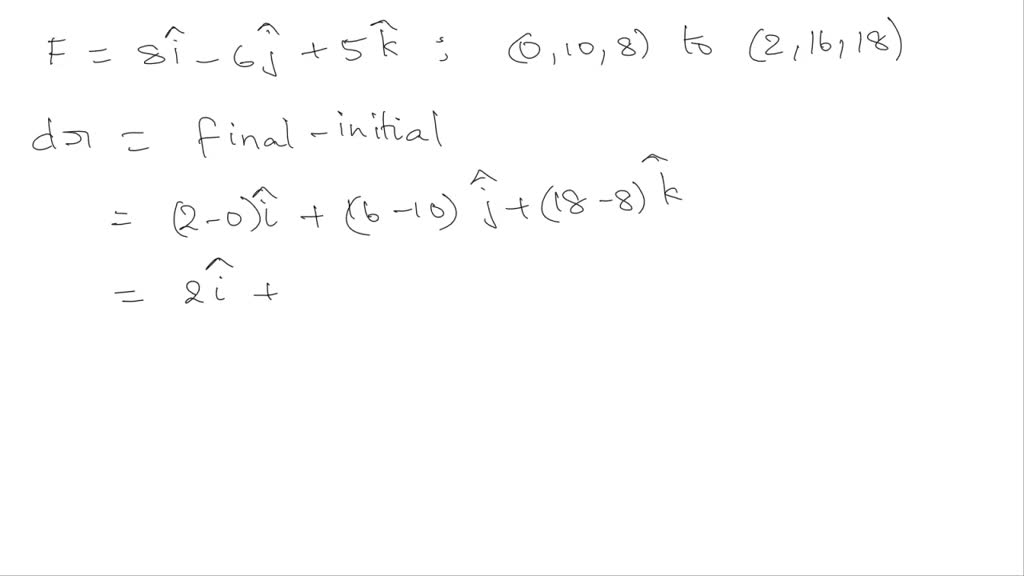 F = 8î - 6ĵ + 5k̂ ; (0,10,8) to (2,16,18)
dr = final - initial
= (2-0)î + (16-10)ĵ + (18-8)k̂
= 2î +